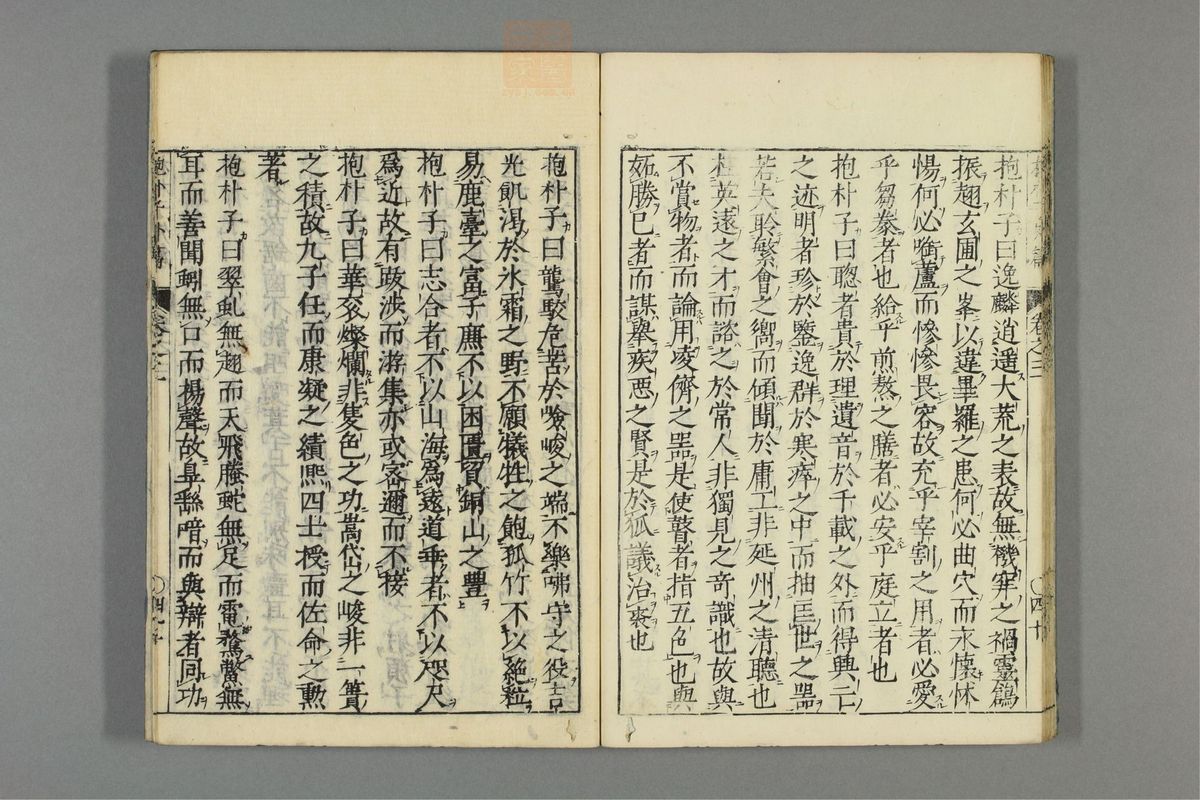 抱朴子曰逸麟逍遥大荒之表故無機穽之禍靈鶴
振翅玄圃之峯以違畢羅之患何必曲穴而永懷怵
惕何必銜蘆而慘慘畏容故充乎宰割之用者必愛
乎芻豢者也給乎煎熬之膳者必安乎庭立者也
抱朴子曰聰者貴於理遺音於千載之外而得興亡
之迹明者珍於鑒逸群於寒瘁之中而抽匡世之器
若夫聆繁會之嚮而傾聞於庸工非延州之清聽也
枉英遠之才而諮之於常人非獨見之奇識也故與
不賞物者而論用凌儕之器是使瞽者指五色也與
妬勝已者而謀舉疾惡之賢是於狐議治裘也
抱朴子曰鷖駮危苦於嶮峻之端不樂咈守之役吉
光飢渴於氷霜之野不願犧牲之飽孤竹不以絶粒
易鹿臺之富子廉不以困匱貿銅山之豐
抱朴子曰志合者不以山海為遠道乖者不以咫尺
為近故有跋渉而游集亦或密邇而不接
抱朴子曰華衮燦爛非隻色之功嵩岱之峻非一簣
之積故九子任而康凝之績熙四七授而佐命之勲
著
抱朴子曰翠虬無翅而天飛螣蛇無足而電騖鱉無
耳而善聞蚓無口而揚聲故皐繇喑而與辯者同功
卷之三
〇四十
抱朴子外篇
卷之三